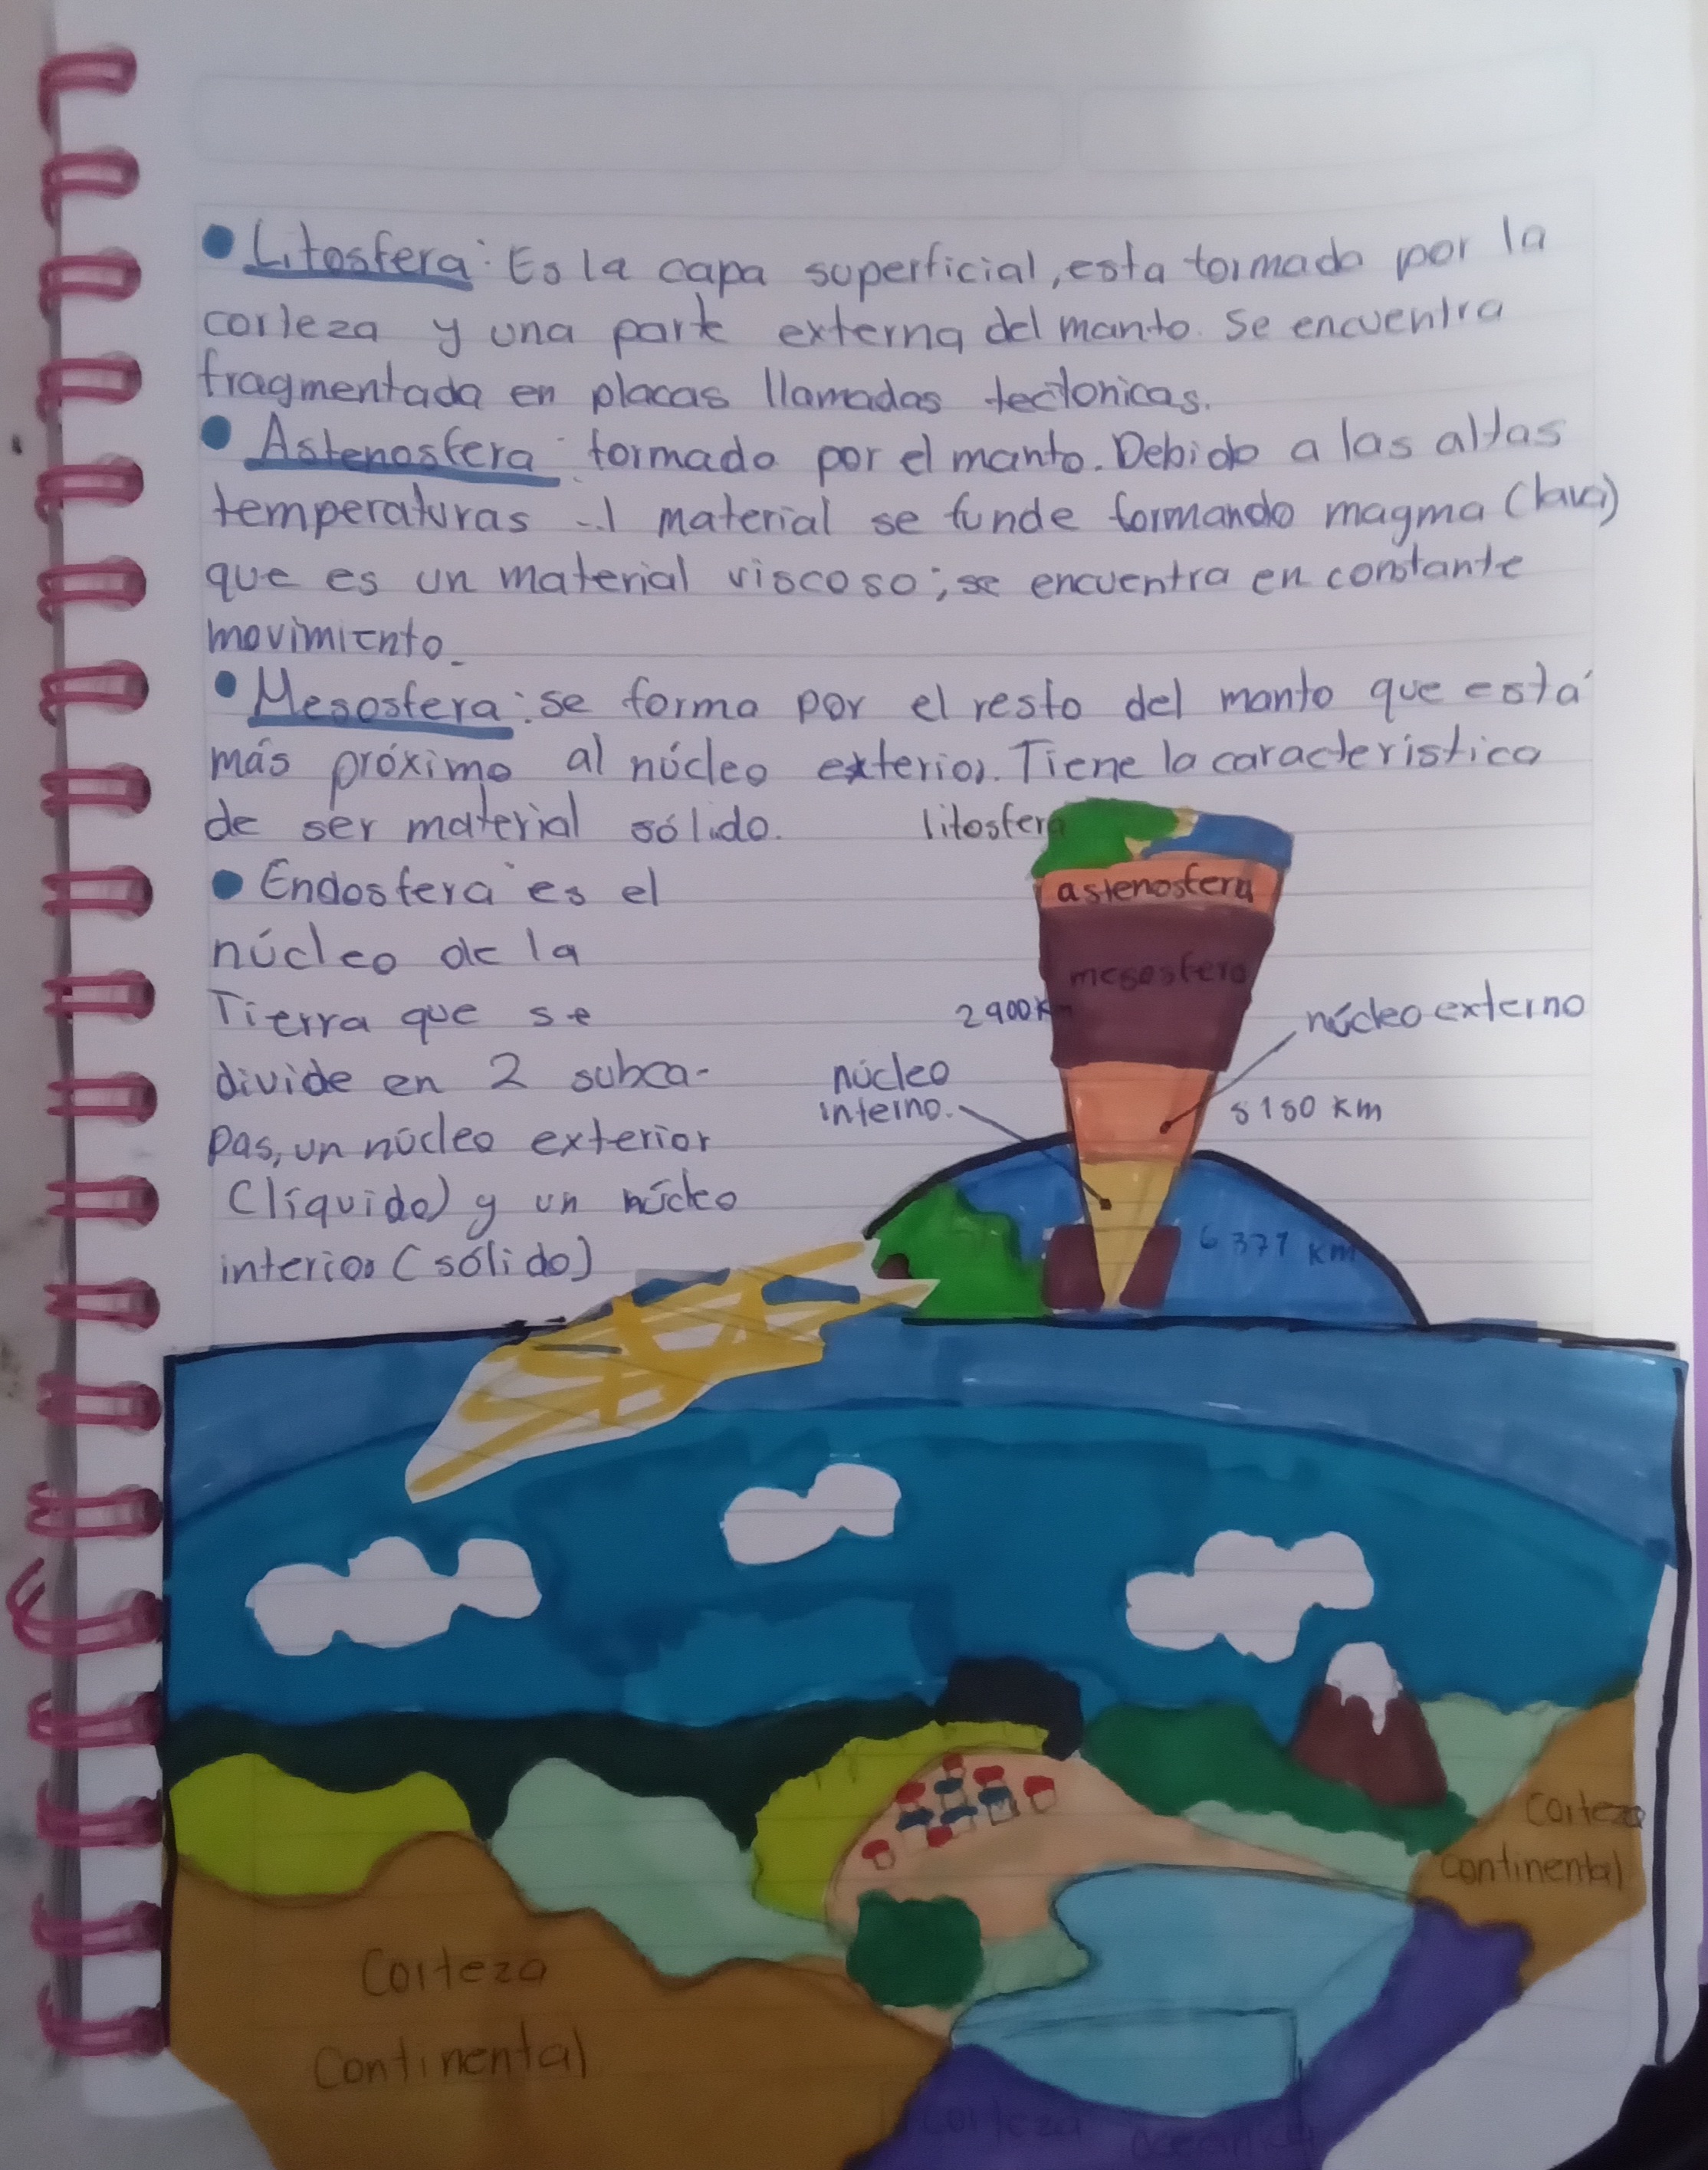 • Litosfera: Es la capa superficial, esta formada por la
corteza y una parte externa del manto. Se encuentra
fragmentada en placas llamadas tectonicas.
• Astenosfera: formado por el manto. Debido a las altas
temperaturas el material se funde formando magma (lava)
que es un material viscoso; se encuentra en constante
movimiento.
• Mesosfera: se forma por el resto del manto que está
más próximo al núcleo exterior. Tiene la caracteristica
de ser material sólido.
litosfera
• Endosfera es el
núcleo de la
Tierra que se
divide en 2 subca-
pas, un núcleo exterior
(líquido) y un núcleo
interior (sólido)
astenosfera
mesosfera
2900 km
núcleo externo
núcleo
interno.
5150 km
6371 km
Corteza
continental
Corteza
Continental
corteza oceanica